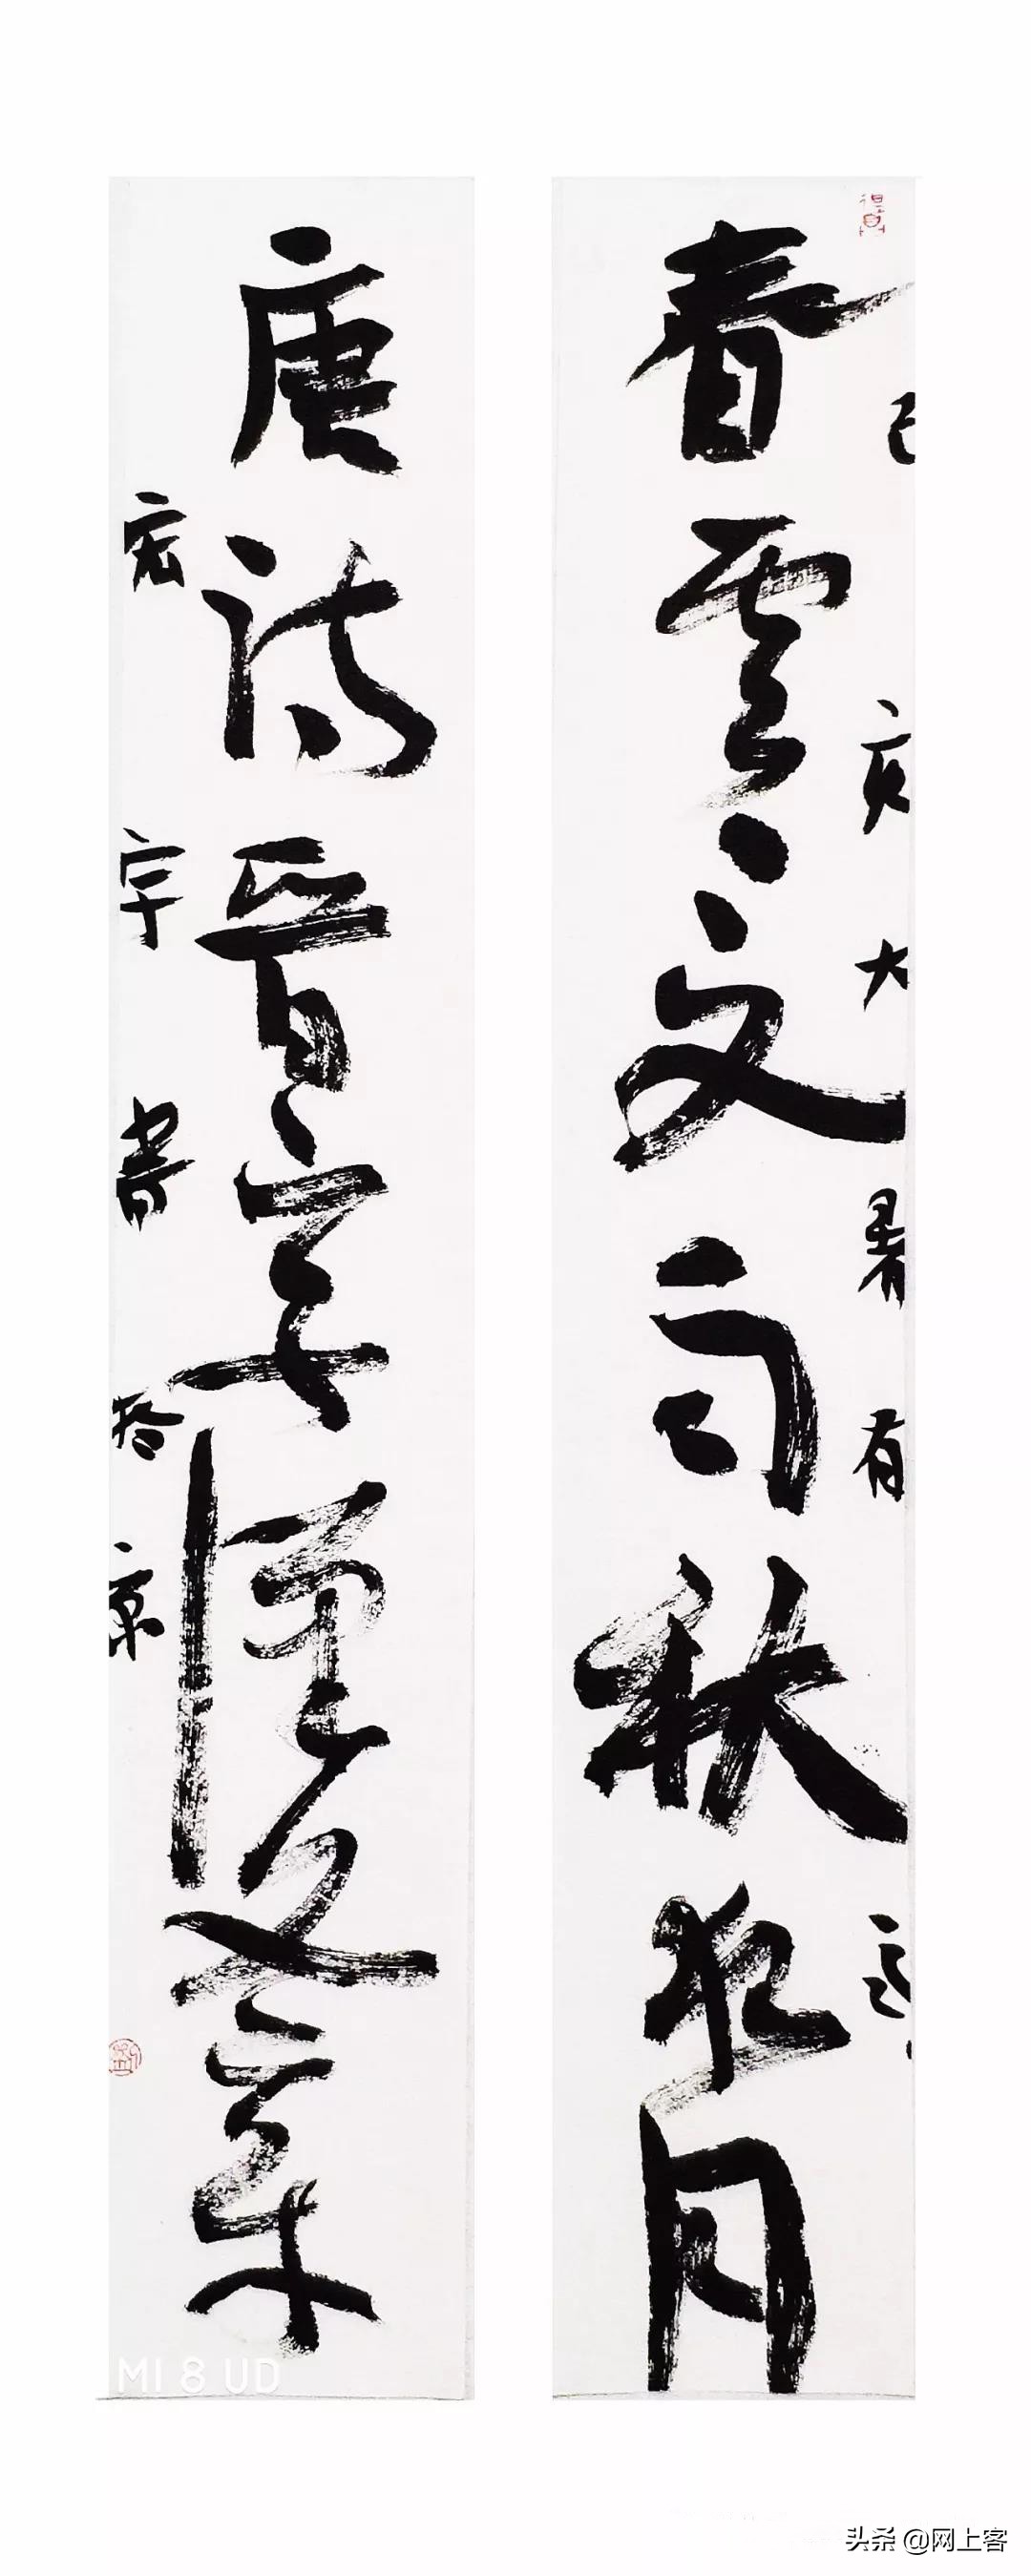 春雲夏雨秋夜月
己亥大暑有
唐詩晉字漢文章
宏宇書於京
MI 8 UD
头条 @网上客